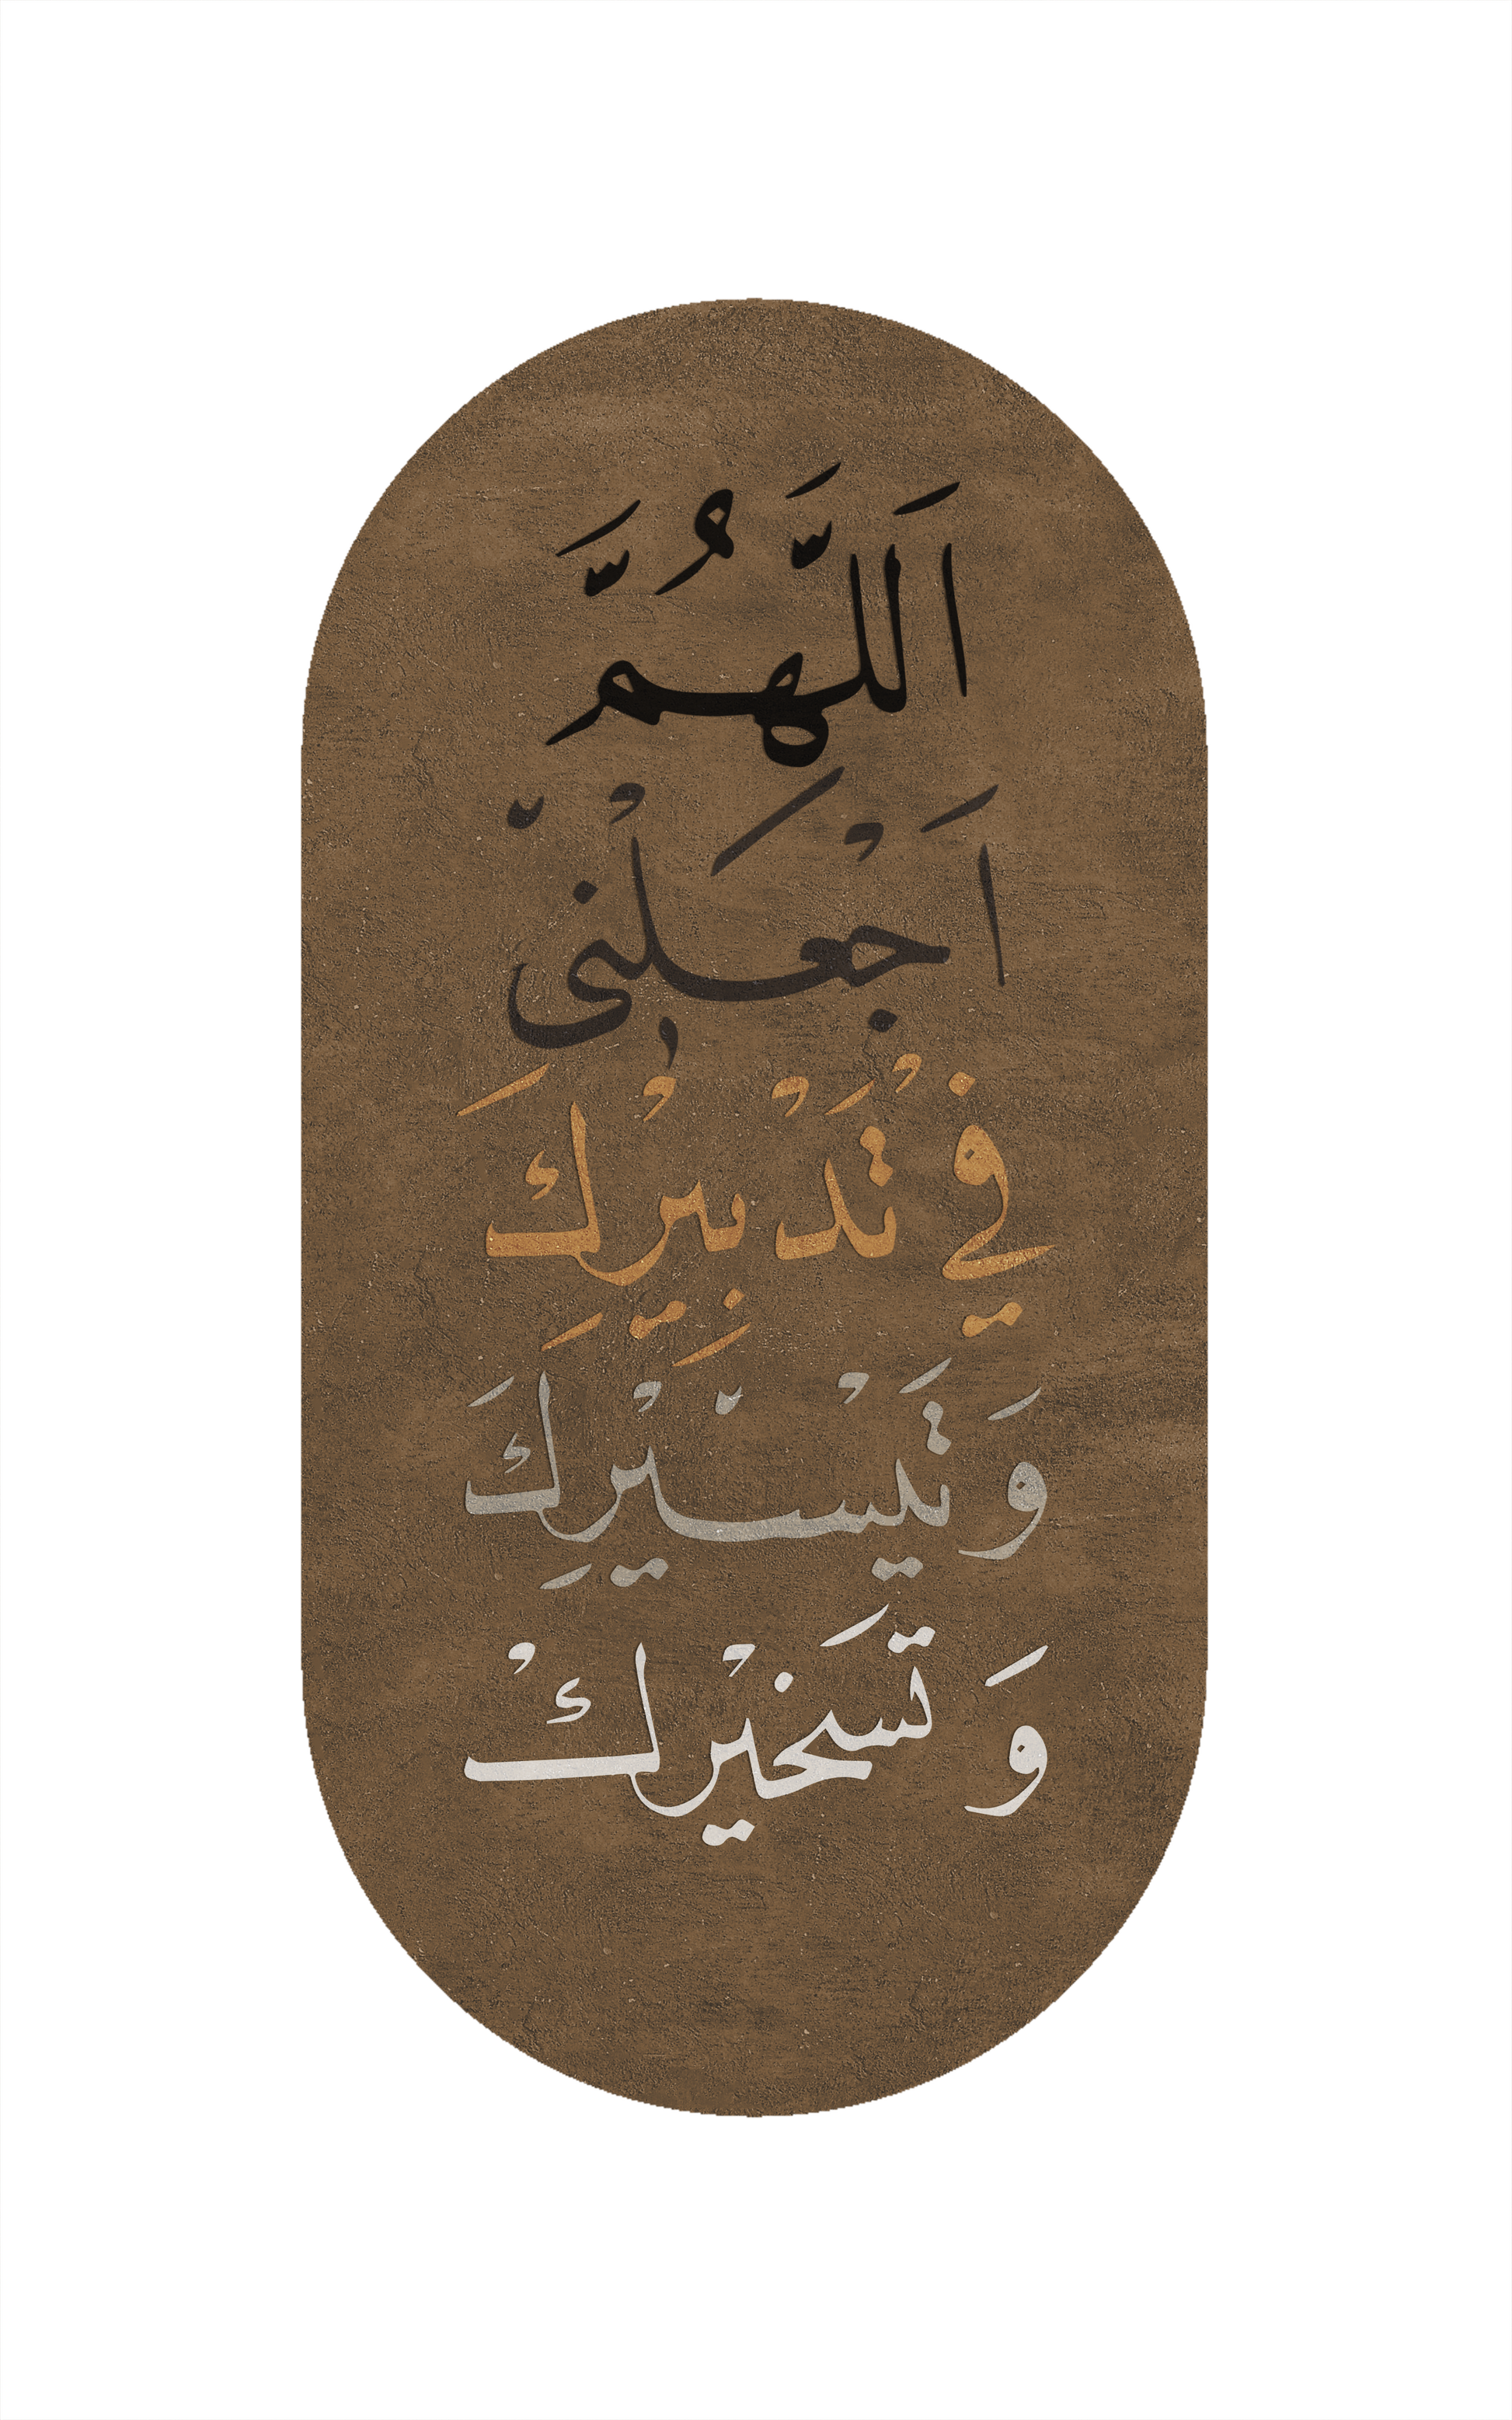 اَللَّهُمَّ
اَجْعَلْنى
في تَدْبِيْرِكَ
وَ تَيْسيْرِكَ
وَ تَسخيْركْ